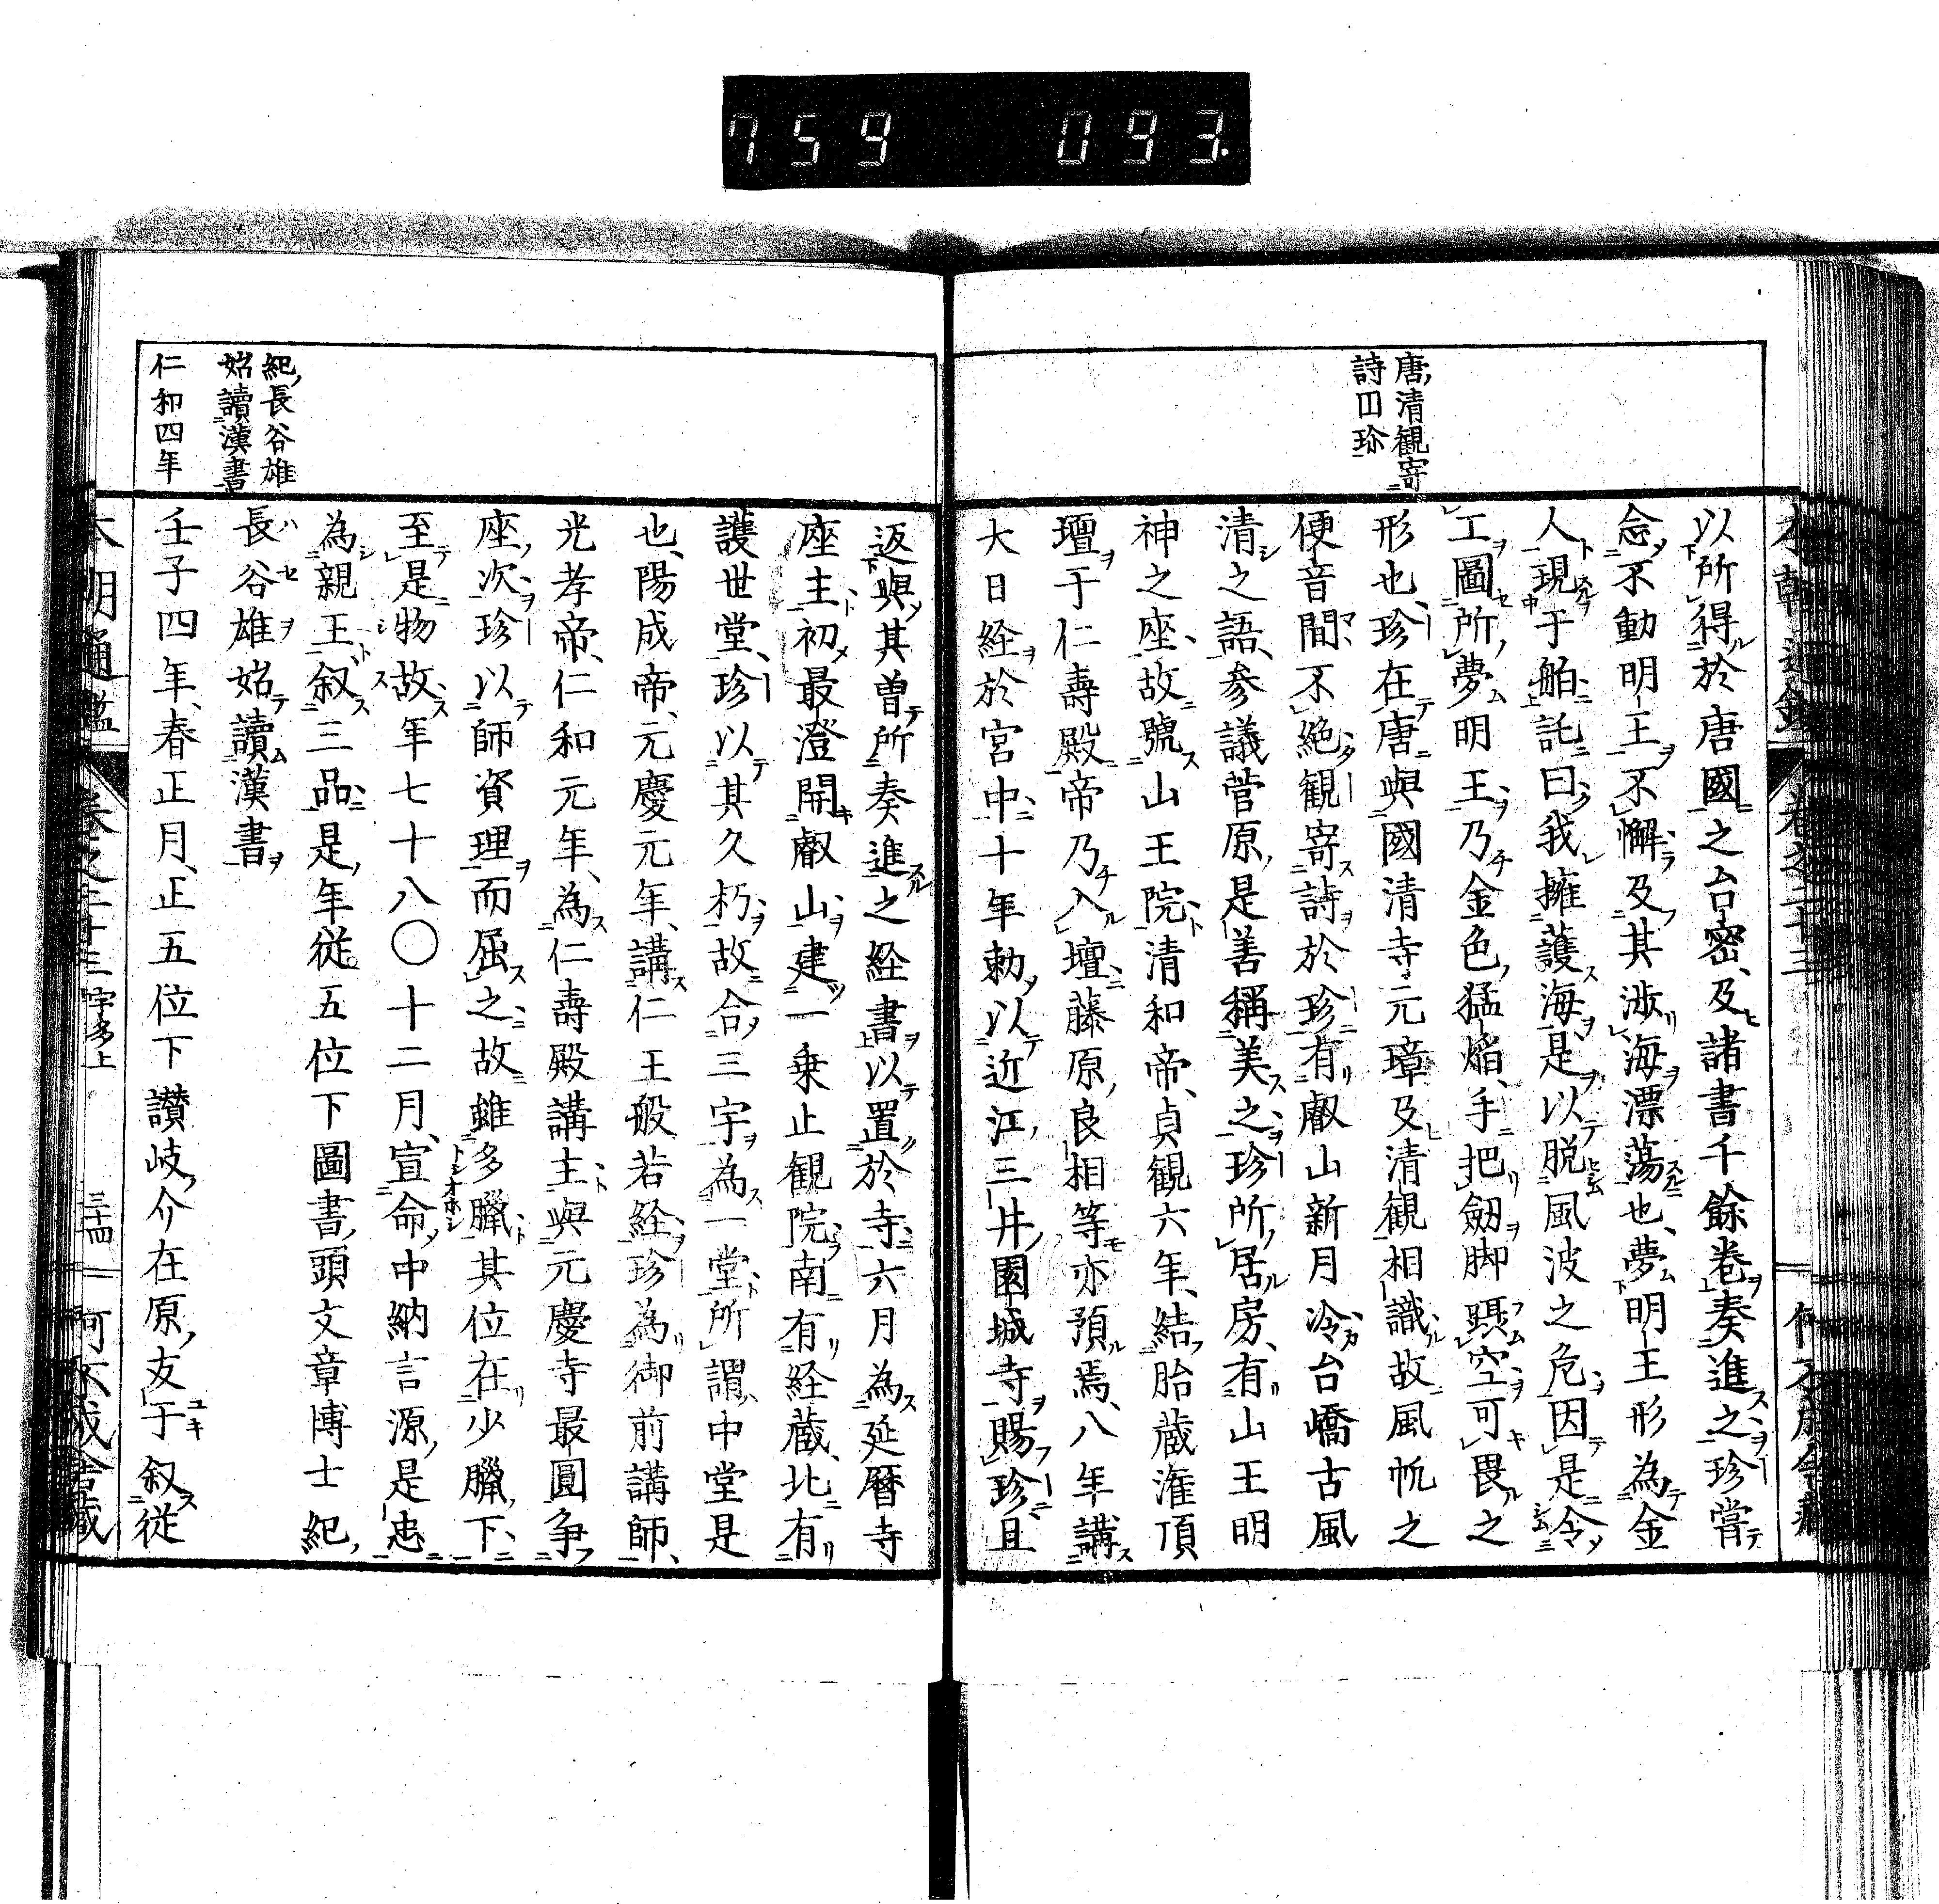 759 093.
唐清観寄
詩円珍
以所得於唐國之台密、及諸書千餘巻奏進之珍嘗
念不動明王不懈及其渉海漂蕩也、夢明王形為金
人現于舶託曰我擁護海是以脱風波之危因是令
工圖所夢明王乃金色猛焔、手把劔脚踬空可畏之
形也珍在唐與國清寺元璋及清観相識故風帆之
便音問不絶観寄詩於珍有叡山新月冷台嶠古風
清之語、参議菅原是善稱美之珍所居房、有山王明
神之座、故號山王院清和帝、貞観六年、結胎蔵潅頂
壇于仁壽殿帝乃入壇藤原良相等亦預焉、八年講
大日経於宮中十年勅以近江三井園城寺賜珍且
返與其曽所奏進之経書以置於寺六月為延暦寺
座主初最澄開叡山建一乗止観院南有経蔵、北有
護世堂、珍以其久朽故合三宇為一堂所謂中堂是
也、陽成帝、元慶元年、講仁王般若経珍為御前講師、
光孝帝、仁和元年、為仁壽殿講主與元慶寺最圓争
座次珍以師資理而屈之故雖多臘其位在少臘下
至是物故年七十八〇十二月、宣命中納言源是忠
為親王叙三品是年従五位下圖書頭文章博士紀
長谷雄始讀漢書
壬子四年、春正月、正五位下讃岐介在原友于叙従
紀長谷雄
始讀漢書
仁和四年
本朝通鑑 巻之二十三 宇多上 三十四